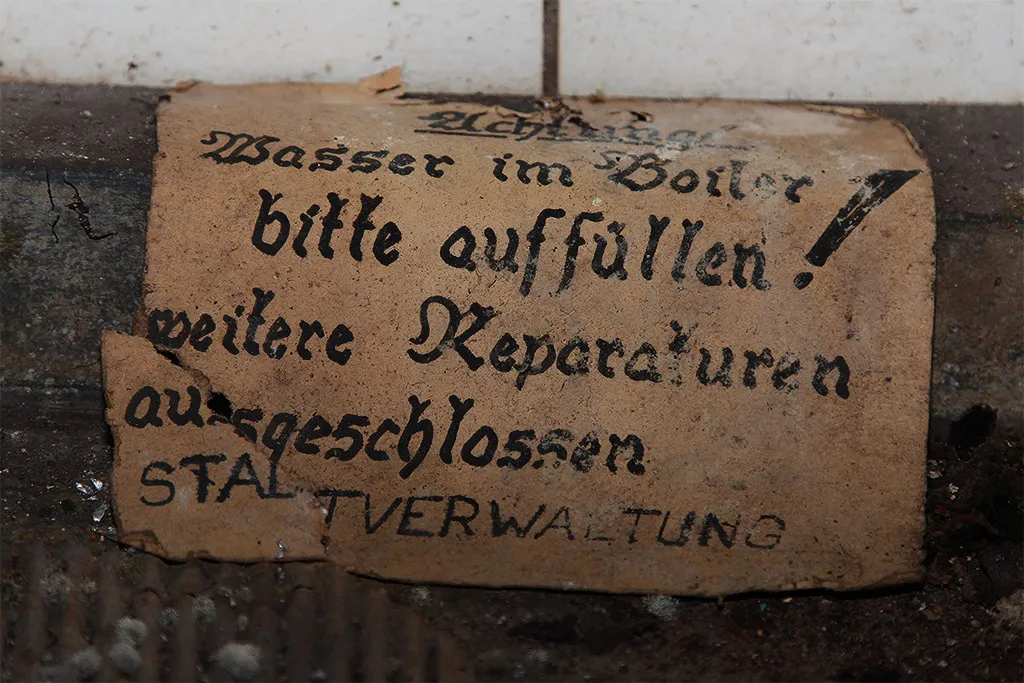 Achtung!
Wasser im Boiler
bitte auffüllen!
weitere Reparaturen
ausgeschlossen
STALTVERWALTUNG